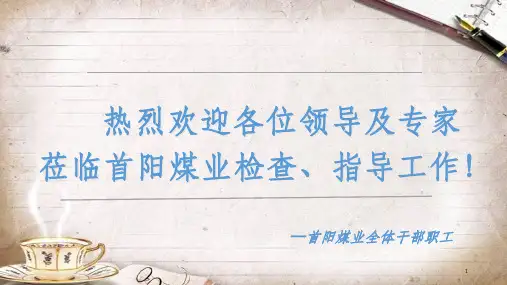 热烈欢迎各位领导及专家
莅临首阳煤业检查、指导工作!
—首阳煤业全体干部职工
1